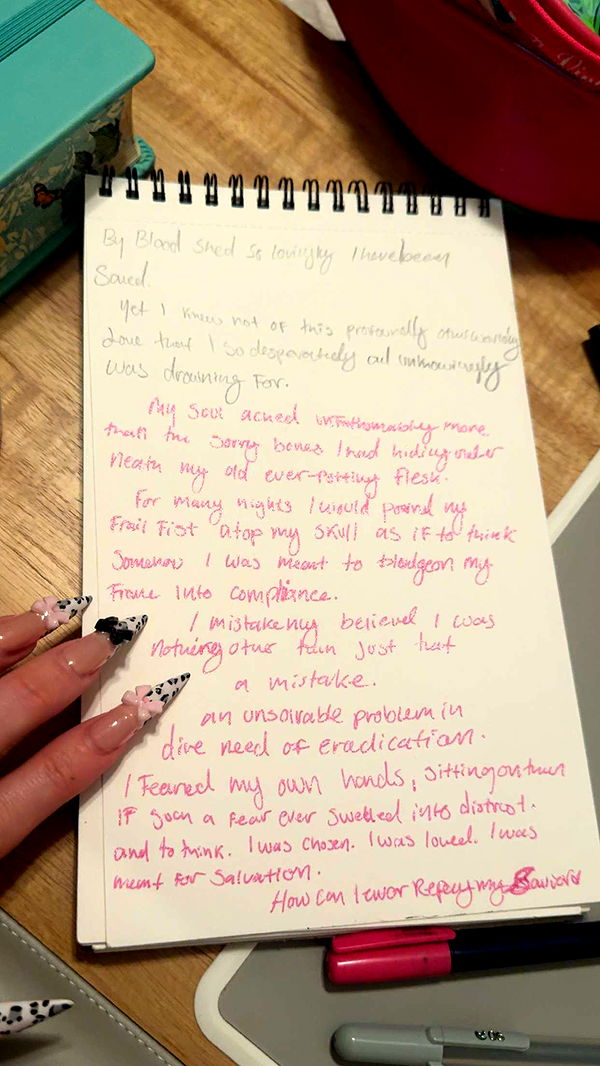 By Blood shed so lovingly I have been
Saved.
Yet I knew not of this profoundly otherworldly
Love that I so desparately and unknowingly
was drowning For.
My soul ached unfathomably more
than the sorry bones I had hiding under
neath my old ever-rotting flesh.
For many nights I would pound my
Frail Fist atop my skull as if to think
Somehow I was meant to bludgeon my
Frame into compliance.
I mistakenly believed I was
nothing other than just that
a mistake.
an unsolvable problem in
dire need of eradication.
I Feared my own hands, sitting on them
IF such a Fear ever swelled into distrust.
and to think. I was chosen. I was loved. I was
meant For Salvation.
How can I ever Repay my Savior